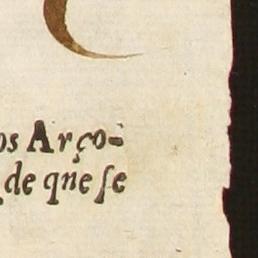 os Arço-
de que ſe